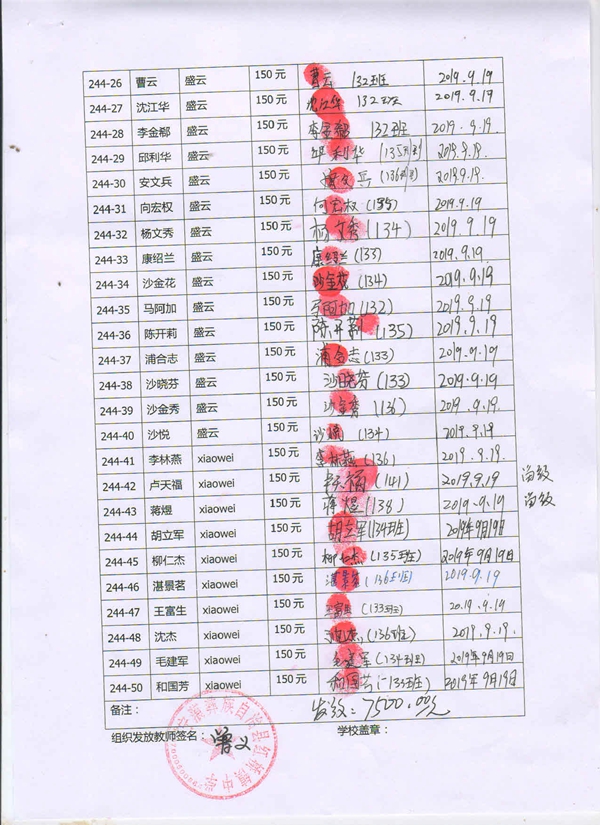 244-26 曹云 盛云 150元 曹云 132班 2019.9.19
244-27 沈江华 盛云 150元 沈江华 132班 2019.9.19
244-28 李金郗 盛云 150元 李金郗 132班 2019.9.19.
244-29 邱利华 盛云 150元 邱利华 (135班) 2019.9.19.
244-30 安文兵 盛云 150元 安文兵 (136班) 2019.9.19.
244-31 向宏权 盛云 150元 向宏权 (135) 2019.9.19
244-32 杨文秀 盛云 150元 杨文秀 (134) 2019.9.19
244-33 康绍兰 盛云 150元 康绍兰 (133) 2019.9.19.
244-34 沙金花 盛云 150元 沙金花 (134) 2019.9.19
244-35 马阿加 盛云 150元 马阿加 (132) 2019.9.19
244-36 陈开莉 盛云 150元 陈开莉 (135) 2019.9.19
244-37 浦合志 盛云 150元 浦合志 (133) 2019.9.19
244-38 沙晓芬 盛云 150元 沙晓芬 (133) 2019.9.19
244-39 沙金秀 盛云 150元 沙金秀 (136) 2019.9.19.
244-40 沙悦 盛云 150元 沙 (134) 2019.9.19
244-41 李林燕 xiaowei 150元 李林燕 (136) 2019.9.19.
244-42 卢天福 xiaowei 150元 福 (141) 2019.9.19
244-43 蒋煜 xiaowei 150元 蒋煜 (138) 2019.9.19
244-44 胡立军 xiaowei 150元 胡立军 (134班) 2019年9月19日
244-45 柳仁杰 xiaowei 150元 柳仁杰 (135班) 2019年9月19日
244-46 湛景茗 xiaowei 150元 湛景茗 (136班) 2019.9.19
244-47 王富生 xiaowei 150元 王富生 (133班) 2019.9.19
244-48 沈杰 xiaowei 150元 沈杰 (136班) 2019.9.19.
244-49 毛建军 xiaowei 150元 毛建军 (134班) 2019年9月19日
244-50 和国芳 xiaowei 150元 和国芳 (135班) 2019年9月19日
备注: 发放: 7500.00元
组织发放教师签名: 曾义 学校盖章: